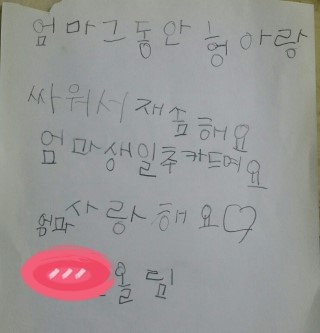 엄마그동안 형아랑
싸워서
엄마생일추카드여요
엄마 사랑해요♡
올림